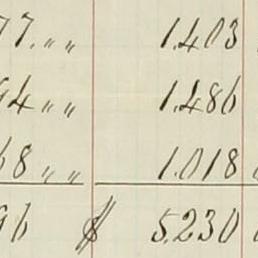 77. " " 1.403
94 " " 1.486
68 " " 1.018
96 $ 5.230